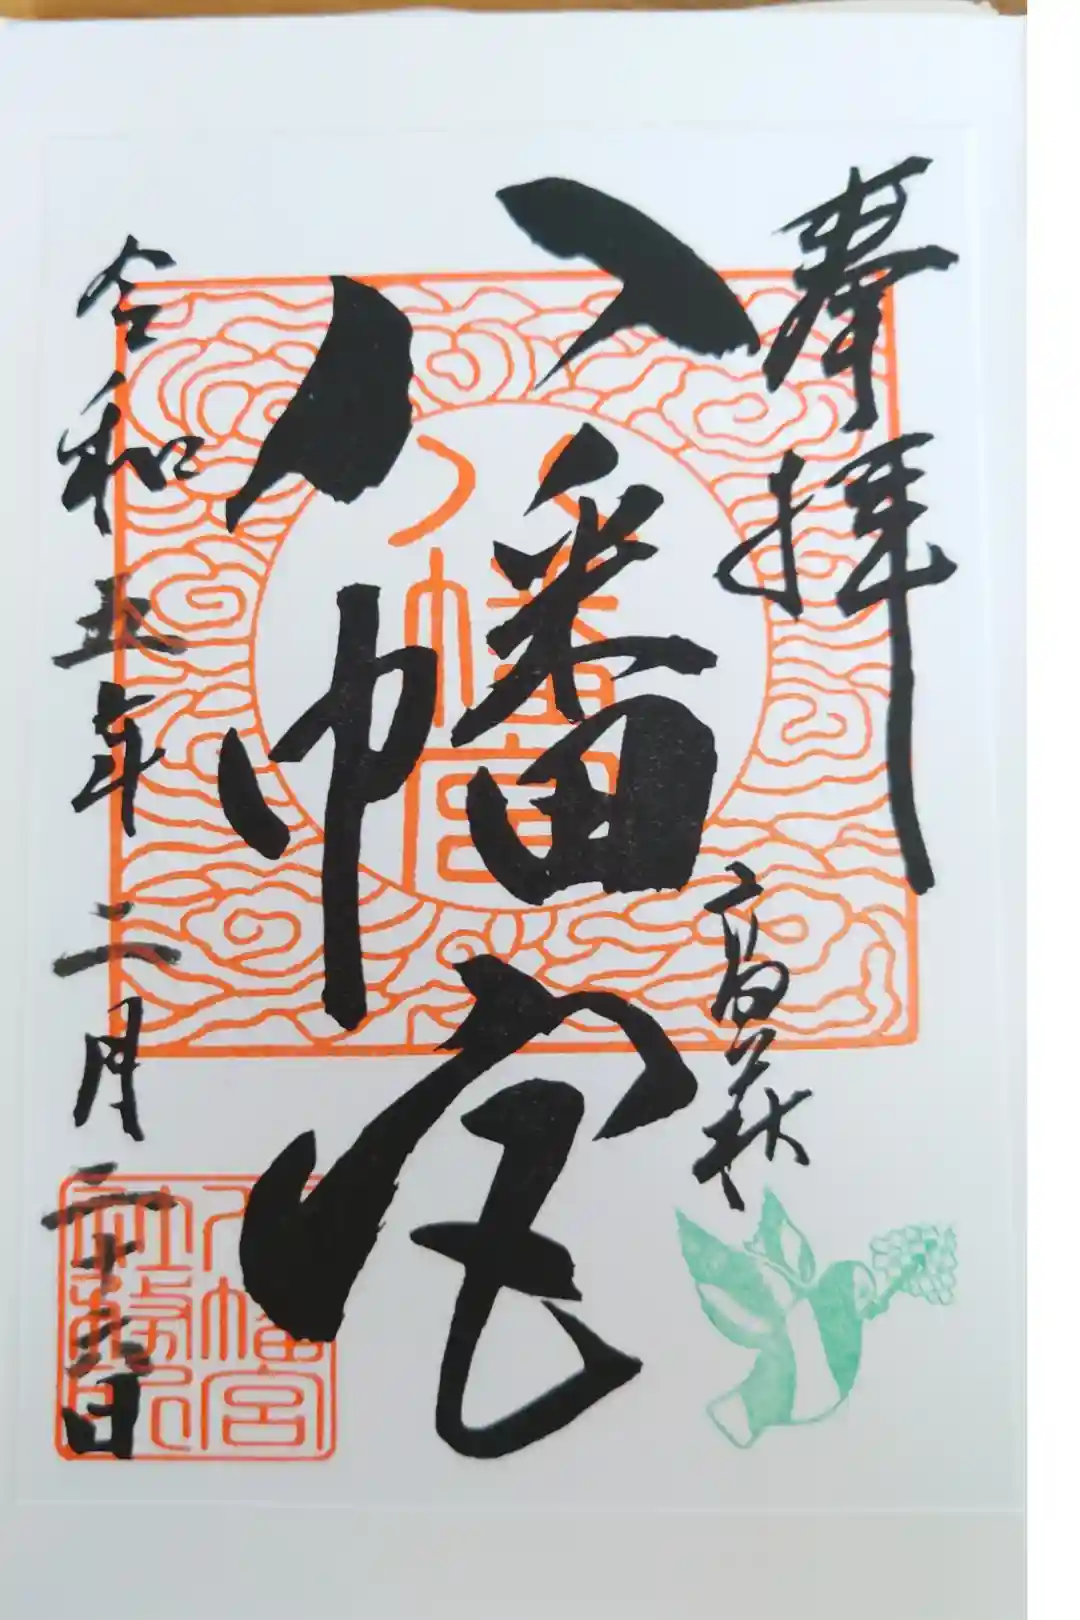 奉拝
高萩
八幡宮
令和五年二月二十六日
八幡宮
八幡宮
社務所